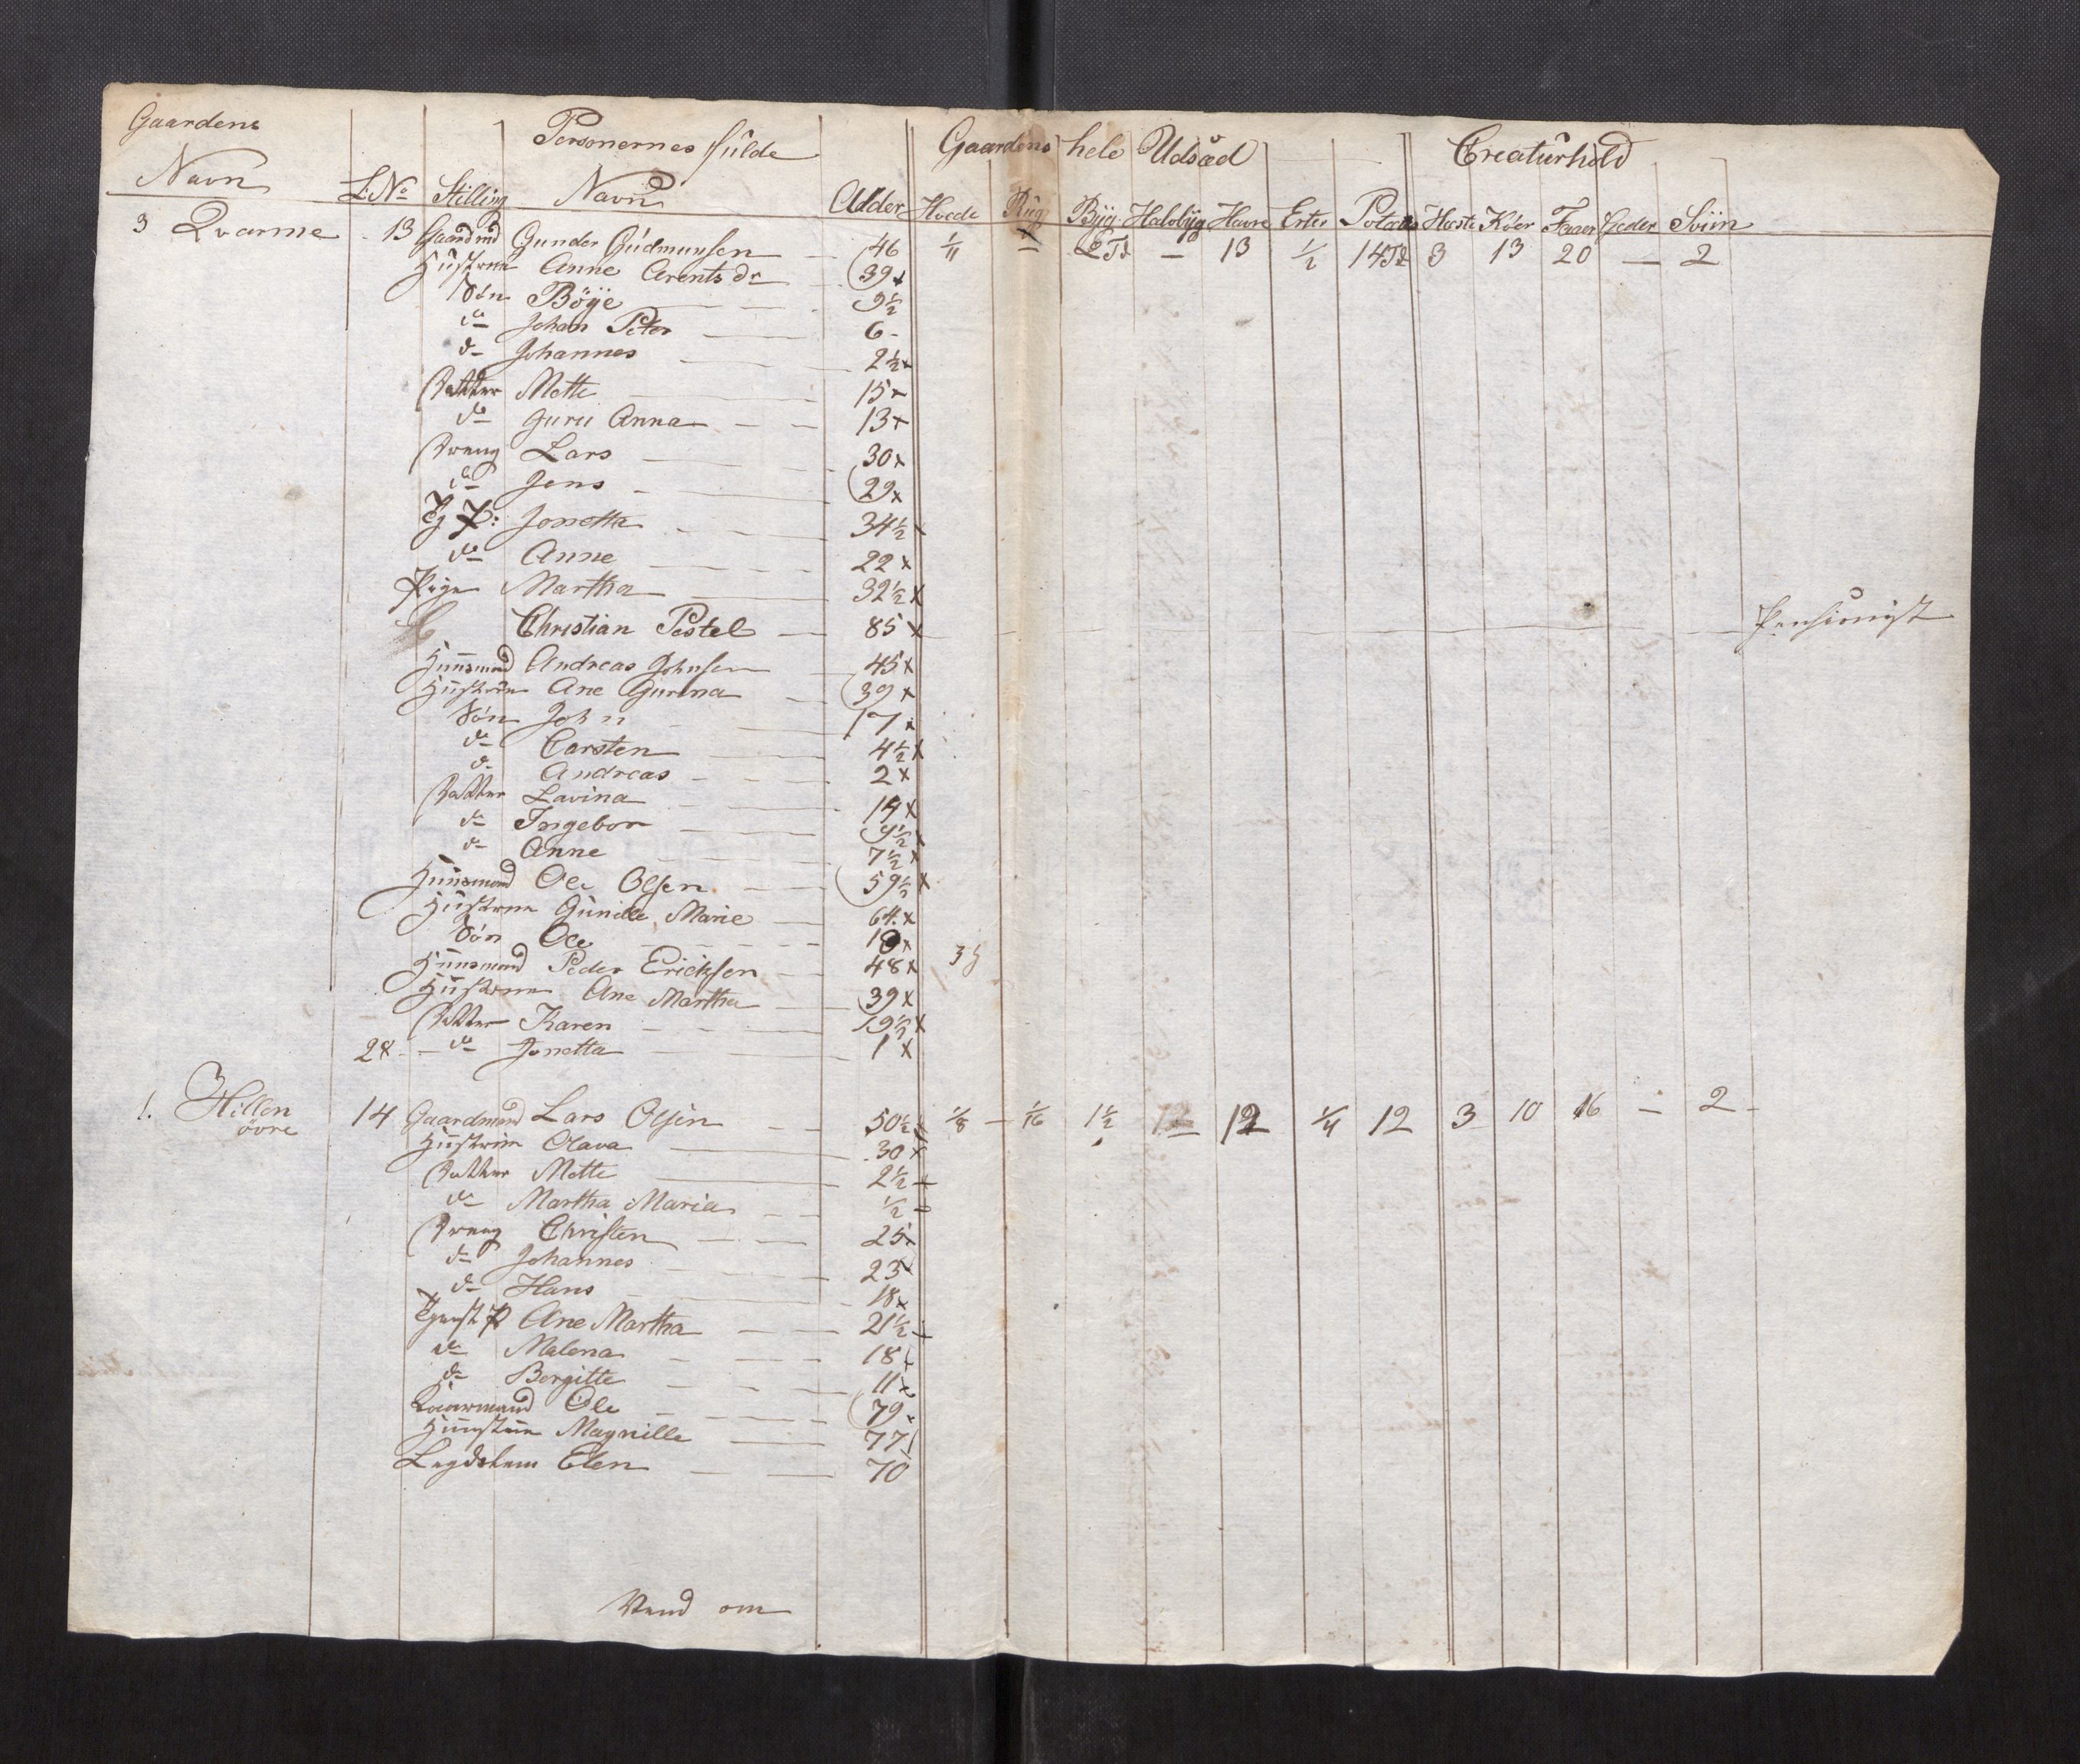 Gaardens Personernes fulde Gaardens hele Udsæd Creaturhold
Navn L: No Stilling Navn Alder Hvede Rug Byg Halvbyg Havre Erter Potates Heste Kiöer Faaer Gieder Sviin
3 Qvarme 13 Gaardmd Gunder Gudmunsen 46 1/4 — 2 Td — 13 1/2 14 Td 3 13 20 — 2
Hustrue Anne Arents dr 39 x
Sön Böÿe 9 1/2
do Johan Peter 6
do Johannes 2 1/2 x
Datter Mette 15 x
do Guru Anna 13 x
Dreng Lars 30 x
do Jens 29 x
Tj P: Jonetta 34 1/2 x
do Anne 22 x
Pige Martha 32 1/2 x
Christian Postel 85 x Pensionist
Huusmand Andreas Johnsen 45 x
Hustrue Ane Gurina 39 x
Sön John 17 x
do Carsten 4 1/2 x
do Andreas 2 x
Datter Lavina 14 x
do Ingebor 9 1/2 x
do Anne 7 1/2 x
Huusmand Ole Olsen 59 1/2 x
Hustrue Gunille Marie 64 x
Sön Ole x
Huusmand Peder Ericksen 48 x
Hustrue Ane Martha 39 x
Datter Karen 19 1/2 x
28 do Jonetta 1 x
1. Hillen 14 Gaardmand Lars Olsen 50 1/2 x 1/8 — 1/16 1 1/2 12 1/4 12 3 10 16 — 2
övre
Hustrue Olava 30 x
Datter Mette 2 1/2
do Martha Maria 1/2
Dreng Christen 25 x
do Johannes 23
do Hans 18 x
Tjenst P Ane Martha 21 1/2
do Malena 18
do Bergitte 11 x
Kaarmand Ole 79
Huustrue Magnille 77
Lægdslem Elen 70
Vend om